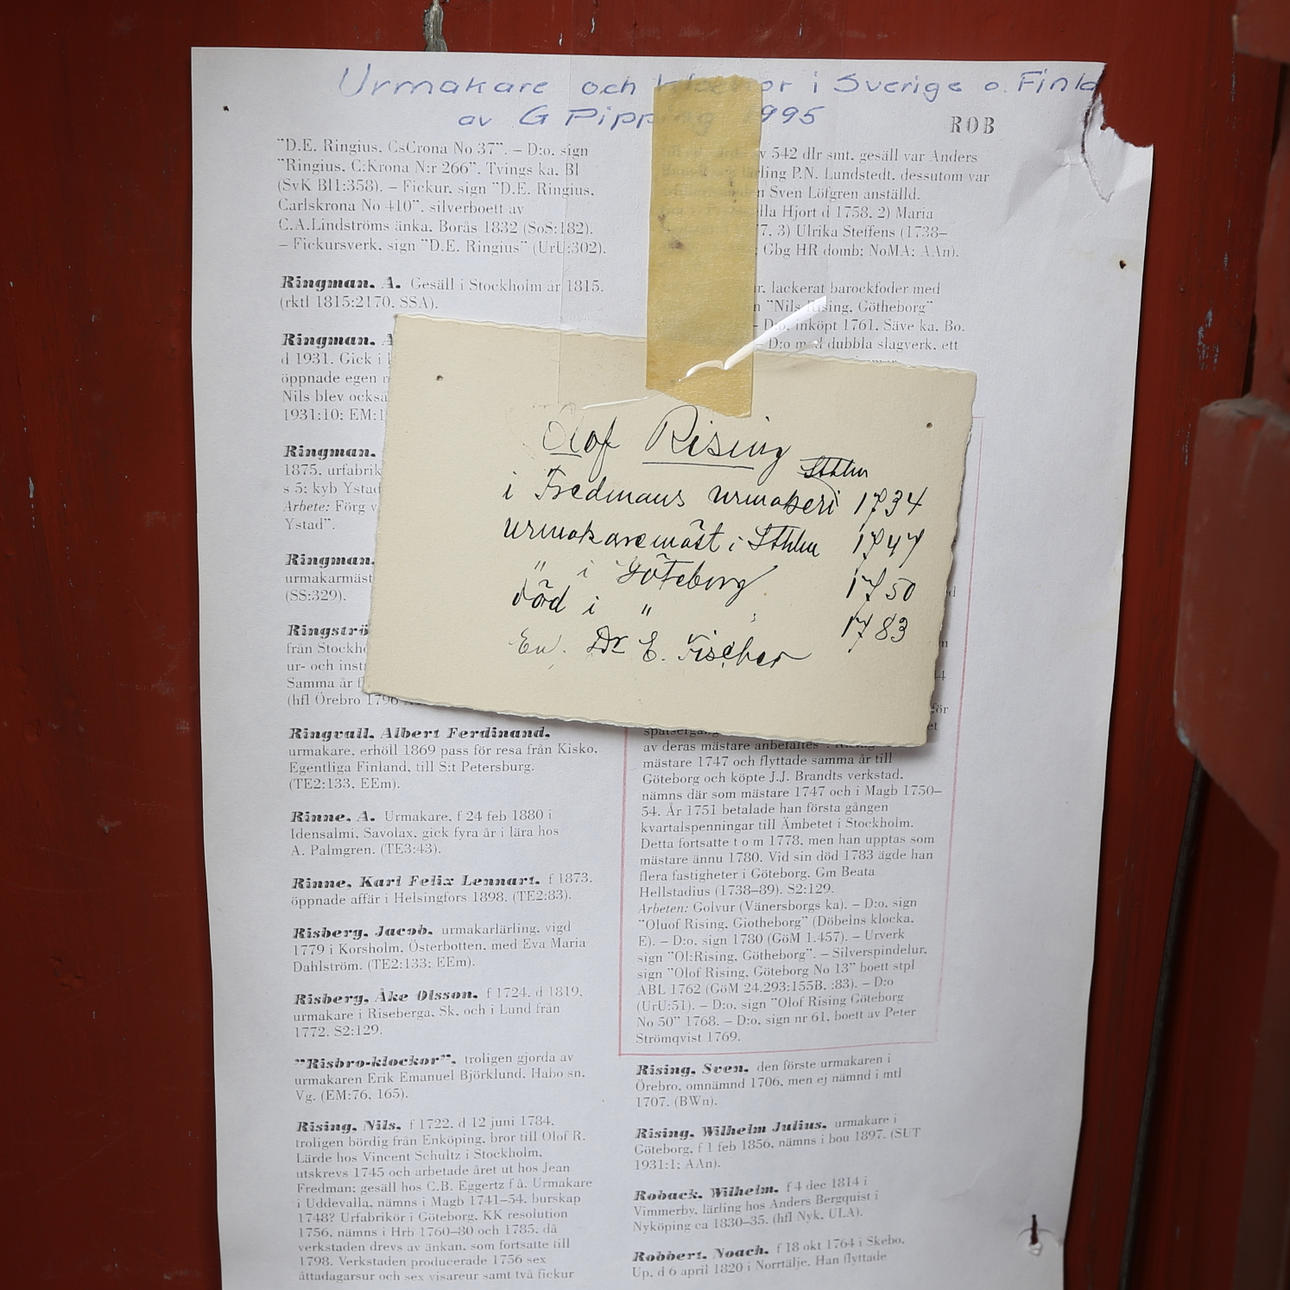 Urmakare och klockor i Sverige o. Finla
av G Pipping 1995
ROB
"D.E. Ringius, CsCrona No 37". – D:o, sign
"Ringius, C:Krona N:r 266", Tvings ka, Bl
(SvK Bl1:358). – Fickur, sign "D.E. Ringius,
Carlskrona No 410", silverboett av
C.A.Lindströms änka, Borås 1832 (SoS:182).
– Fickursverk, sign "D.E. Ringius" (UrU:302).
Ringman, A. Gesäll i Stockholm år 1815.
(rktl 1815:2170, SSA).
Ringman, A
d 1931. Gick i l
öppnade egen r
Nils blev också
1931:10; EM:1
Ringman,
1875, urfabrik
s 5; kyb Ystad
Arbete: Förg v
Ystad".
Ringman,
urmakarmäst
(SS:329).
Ringströ
från Stockho
ur- och inst
Samma år f
(hfl Örebro 1796
Ringvall, Albert Ferdinand,
urmakare, erhöll 1869 pass för resa från Kisko,
Egentliga Finland, till S:t Petersburg.
(TE2:133, EEm).
Rinne, A. Urmakare, f 24 feb 1880 i
Idensalmi, Savolax, gick fyra år i lära hos
A. Palmgren. (TE3:43).
Rinne, Karl Felix Lennart, f 1873,
öppnade affär i Helsingfors 1898. (TE2:83).
Risberg, Jacob, urmakarlärling, vigd
1779 i Korsholm, Österbotten, med Eva Maria
Dahlström. (TE2:133; EEm).
Risberg, Åke Olsson, f 1724, d 1819,
urmakare i Riseberga, Sk, och i Lund från
1772. S2:129.
"Risbro-klockor", troligen gjorda av
urmakaren Erik Emanuel Björklund, Habo sn,
Vg. (EM:76, 165).
Rising, Nils, f 1722, d 12 juni 1784,
troligen bördig från Enköping, bror till Olof R.
Lärde hos Vincent Schultz i Stockholm,
utskrevs 1745 och arbetade året ut hos Jean
Fredman; gesäll hos C.B. Eggertz f å. Urmakare
i Uddevalla, nämns i Magb 1741–54, burskap
1748? Urfabrikör i Göteborg, KK resolution
1756, nämns i Hrb 1760–80 och 1785, då
verkstaden drevs av änkan, som fortsatte till
1798. Verkstaden producerade 1756 sex
åttadagarsur och sex visareur samt två fickur
v 542 dlr smt, gesäll var Anders
ling P.N. Lundstedt, dessutom var
n Sven Löfgren anställd.
lla Hjort d 1758, 2) Maria
7, 3) Ulrika Steffens (1738–
; Gbg HR domb; NoMA; AAn).
r, lackerat barockfoder med
n "Nils Rising, Götheborg"
– D:o, inköpt 1761, Säve ka, Bo.
– D:o med dubbla slagverk, ett
Olof Rising
i Fredmans urmakeri Sthlm 1734
urmakaremäst i Sthlm 1747
" i Göteborg 1750
död i " 1783
Enl. Dr E. Fischer
för
av deras mästare anbefaltes
mästare 1747 och flyttade samma år till
Göteborg och köpte J.J. Brandts verkstad,
nämns där som mästare 1747 och i Magb 1750–
54. År 1751 betalade han första gången
kvartalspenningar till Ämbetet i Stockholm.
Detta fortsatte t o m 1778, men han upptas som
mästare ännu 1780. Vid sin död 1783 ägde han
flera fastigheter i Göteborg. Gm Beata
Hellstadius (1738–89). S2:129.
Arbeten: Golvur (Vänersborgs ka). – D:o, sign
"Oluof Rising, Giotheborg" (Döbelns klocka,
E). – D:o, sign 1780 (GöM 1.457). – Urverk
sign "Ol:Rising, Götheborg". – Silverspindelur,
sign "Olof Rising, Göteborg No 13" boett stpl
ABL 1762 (GöM 24.293:155B, :83). – D:o
(UrU:51). – D:o, sign "Olof Rising Göteborg
No 50" 1768. – D:o, sign nr 61, boett av Peter
Strömqvist 1769.
Rising, Sven, den förste urmakaren i
Örebro, omnämnd 1706, men ej nämnd i mtl
1707. (BWn).
Rising, Wilhelm Julius, urmakare i
Göteborg, f 1 feb 1856, nämns i bou 1897. (SUT
1931:1; AAn).
Roback, Wilhelm, f 4 dec 1814 i
Vimmerby, lärling hos Anders Bergquist i
Nyköping ca 1830–35. (hfl Nyk, ULA).
Robbert, Noach, f 18 okt 1764 i Skebo,
Up, d 6 april 1820 i Norrtälje. Han flyttade